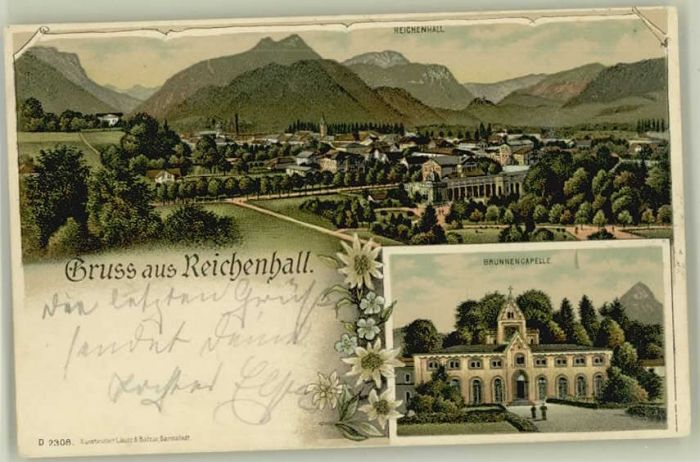 REICHENHALL
Gruss aus Reichenhall.
BRUNNENCAPELLE
Den letzten Grüße
sendet Deine
D 2308. Kunstanstalt Lautz & Balzar, Darmstadt